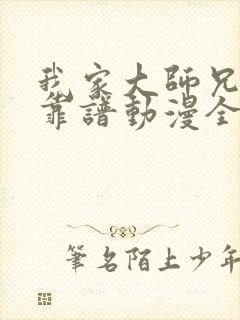 我家大師兄
靠譜動漫全
筆名陌上少年